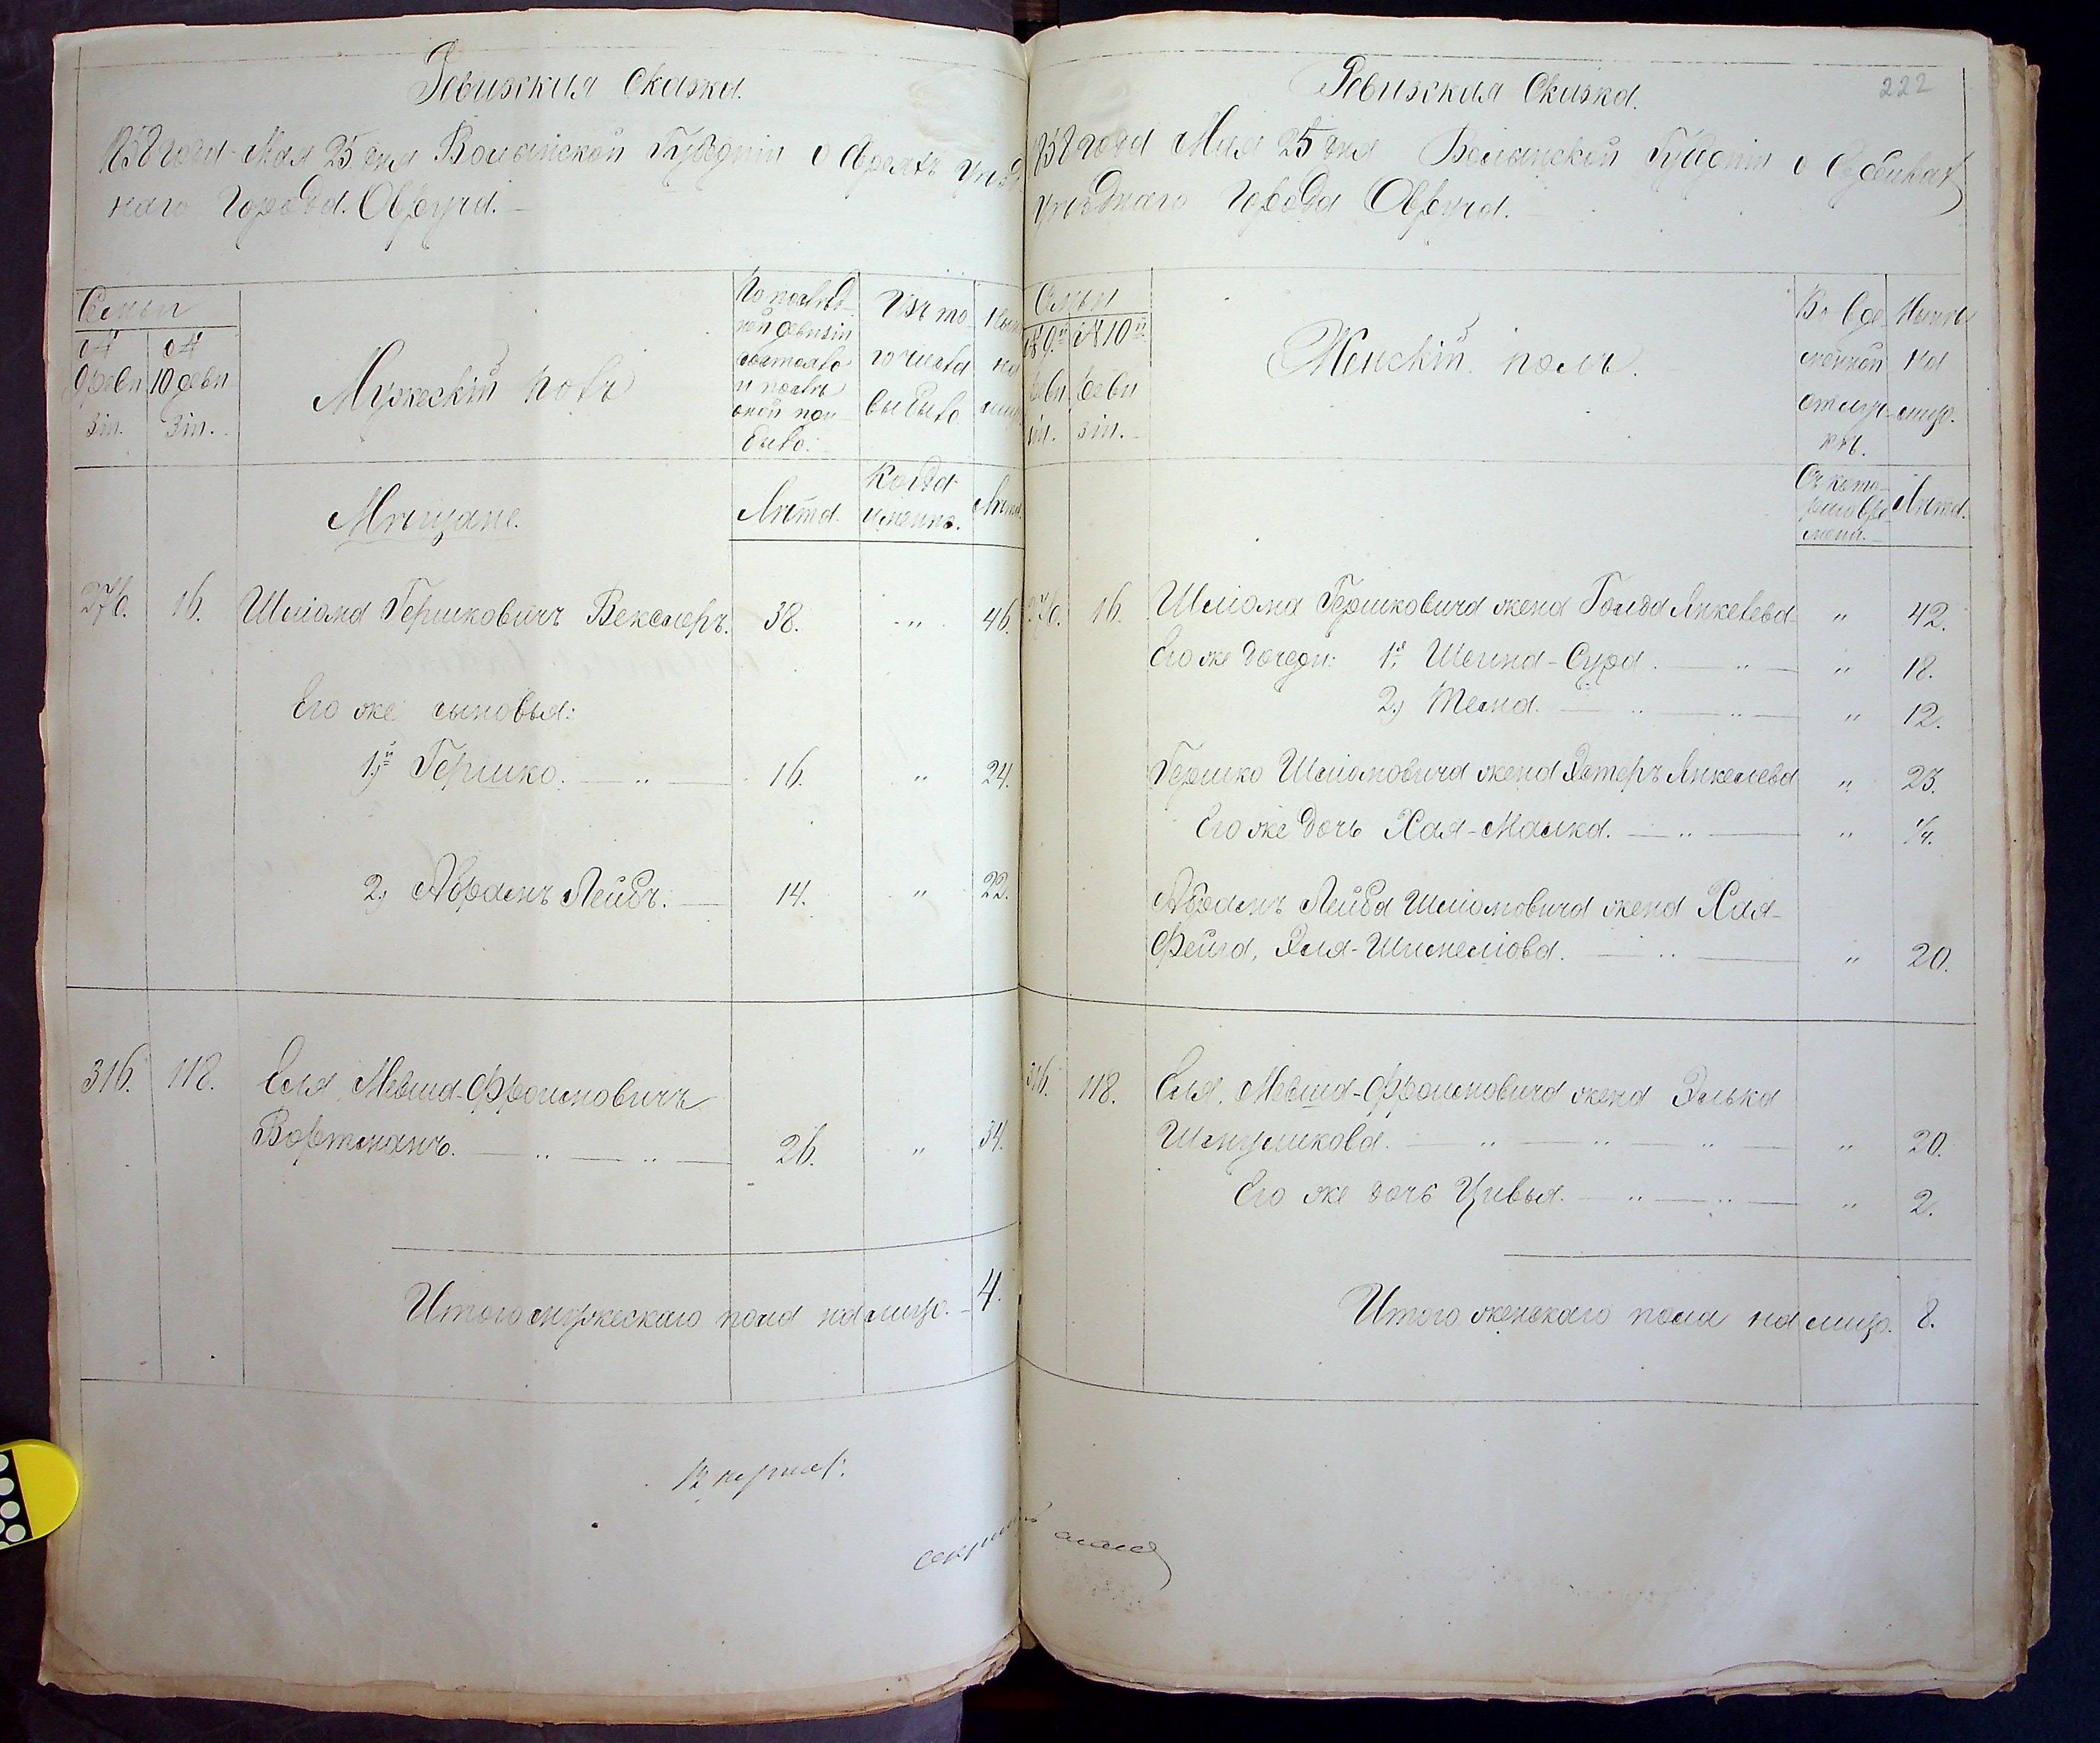 Ревижская Сказка.
1858 года Мая 25 дня Волынской Губерніи о Евреяхъ уѣзд
наго города Овруча.
Семьи
№ 9 реви зіи.
№ 10 реви зіи.
Мужескій полъ
По послѣд ней ревизіи состояло и послѣ оной при было.
Изъ то го числа выбыло
Нынѣ на лицо
Мѣщане.
Лѣта.
Когда именно.
Лѣта.
276. 16. Шліома Гершковичъ Векслеръ. 38. " 46.
Его же сыновья:
1й Гершко. — " — 16. " 24.
2) Абрамъ Лейбъ. — 14. " 22.
316. 118. Еля Мевша-Фроимовичъ
Вортманъ. — " — " — 26. " 34.
Итого мужескаго пола на лицо. 4.
222
Ревижская Сказка.
1858 года Мая 25 дня Волынской Губерніи о
уѣзднаго города Овруча.
Семьи
№ 9й реви зіи.
№ 10й реви зіи.
Женскій полъ.
Во вре менной отлуч кѣ.
Нынѣ на лицо.
Съ кото раго вре мени.
Лѣта.
276. 16. Шліома Гершковича жена Голда Янкелева " 42.
Его же дочери: 1я Шейна-Сура. — " — " 18.
2) Тема. — " — " — " 12.
Гершко Шліомовича жена Эстеръ Янкелева " 23.
Его же дочь Хая-Малка. — " — " 1/4.
Абрамъ Лейба Шліомовича жена Хая-
Фейга, Эля-Шимеліова. — " — " 20.
316. 118. Еля, Мевша-Фроимовича жена Элька
Шмуликова. — " — " — " — " 20.
Его же дочь Цивья. — " — " — " 2.
Итого женскаго пола на лицо. 8.